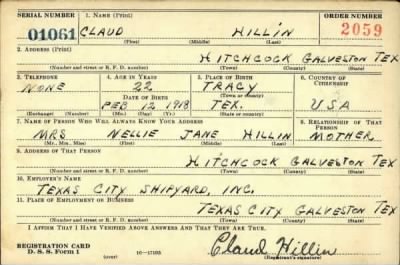 SERIAL NUMBER 1. NAME (Print) ORDER NUMBER
01061 CLAUD HILLIN 2059
(First) (Middle) (Last)
2. ADDRESS (Print)
HITCHCOCK GALVESTON TEX
(Number and street or R. F. D. number) (Town) (County) (State)
3. TELEPHONE 4. AGE IN YEARS 5. PLACE OF BIRTH 6. COUNTRY OF CITIZENSHIP
NONE 22 TRACY
DATE OF BIRTH (Town or county)
FEB 12 1918 TEX. USA
(Exchange) (Number) (Mo.) (Day) (Yr.) (State or country)
7. NAME OF PERSON WHO WILL ALWAYS KNOW YOUR ADDRESS 8. RELATIONSHIP OF THAT PERSON
MRS NELLIE JANE HILLIN MOTHER
(Mr., Mrs., Miss) (First) (Middle) (Last)
9. ADDRESS OF THAT PERSON
HITCHCOCK GALVESTON TEX
(Number and street or R. F. D. number) (Town) (County) (State)
10. EMPLOYER'S NAME
TEXAS CITY SHIPYARD, INC.
11. PLACE OF EMPLOYMENT OR BUSINESS
TEXAS CITY GALVESTON TEX
(Number and street or R. F. D. number) (Town) (County) (State)
I AFFIRM THAT I HAVE VERIFIED ABOVE ANSWERS AND THAT THEY ARE TRUE.
REGISTRATION CARD
D. S. S. Form 1 (over) 16—17105 Claud Hillin
(Registrant's signature)